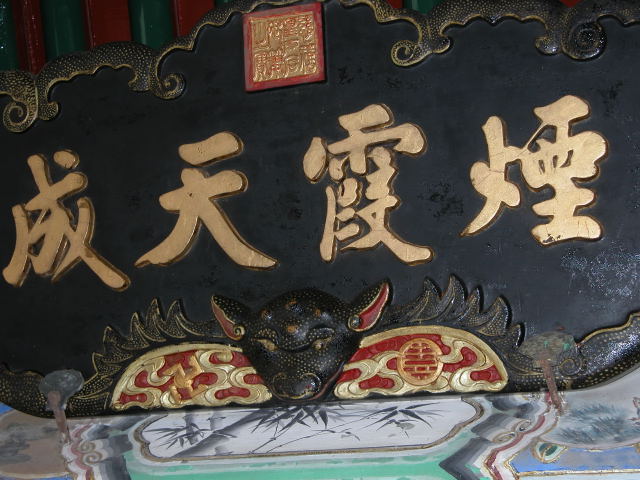 煙霞天成